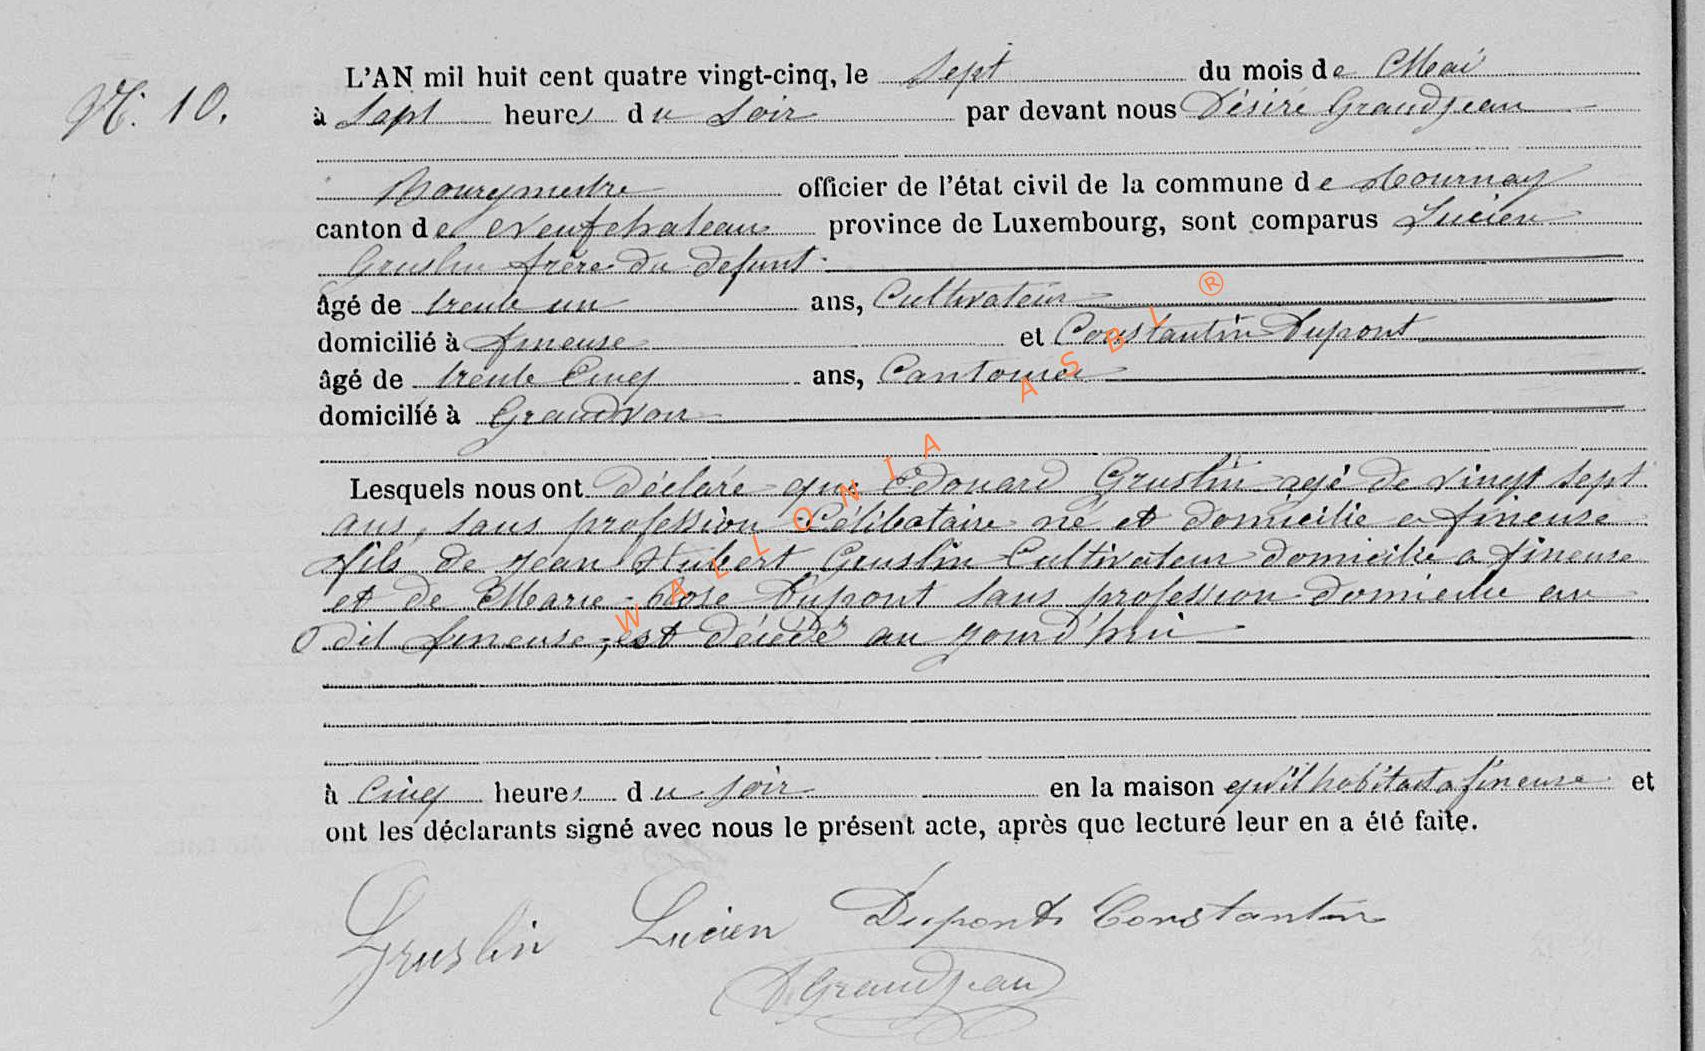 N. 10.
L'AN mil huit cent quatre vingt-cinq, le Sept du mois de Mai
à Sept heures du Soir par devant nous Désiré Grandjean
Bourgmestre officier de l'état civil de la commune de Tournay
canton de Neufchateau province de Luxembourg, sont comparus Lucien
Gruslin frère du defunt
âgé de trente un ans, Cultivateur
domicilié à fineuse et Constantin Dupont
âgé de trente Cinq ans, Cantonier
domicilié à Grandvoir
Lesquels nous ont déclaré que Edouard Gruslin agé de vingt sept
ans, sans profession Célibataire né et domicilié a fineuse
fils de Jean Hubert Gruslin Cultivateur domicilié a fineuse
et de Marie-Rose Dupont sans profession domicilie au
dit fineuse, est décédé au jourd'hui
à Cinq heures du soir en la maison qu'il habitait a fineuse et
ont les déclarants signé avec nous le présent acte, après que lecture leur en a été faite.
Gruslin Lucien Dupont Constantin
D Grandjean
WALLONIA ASBL ®